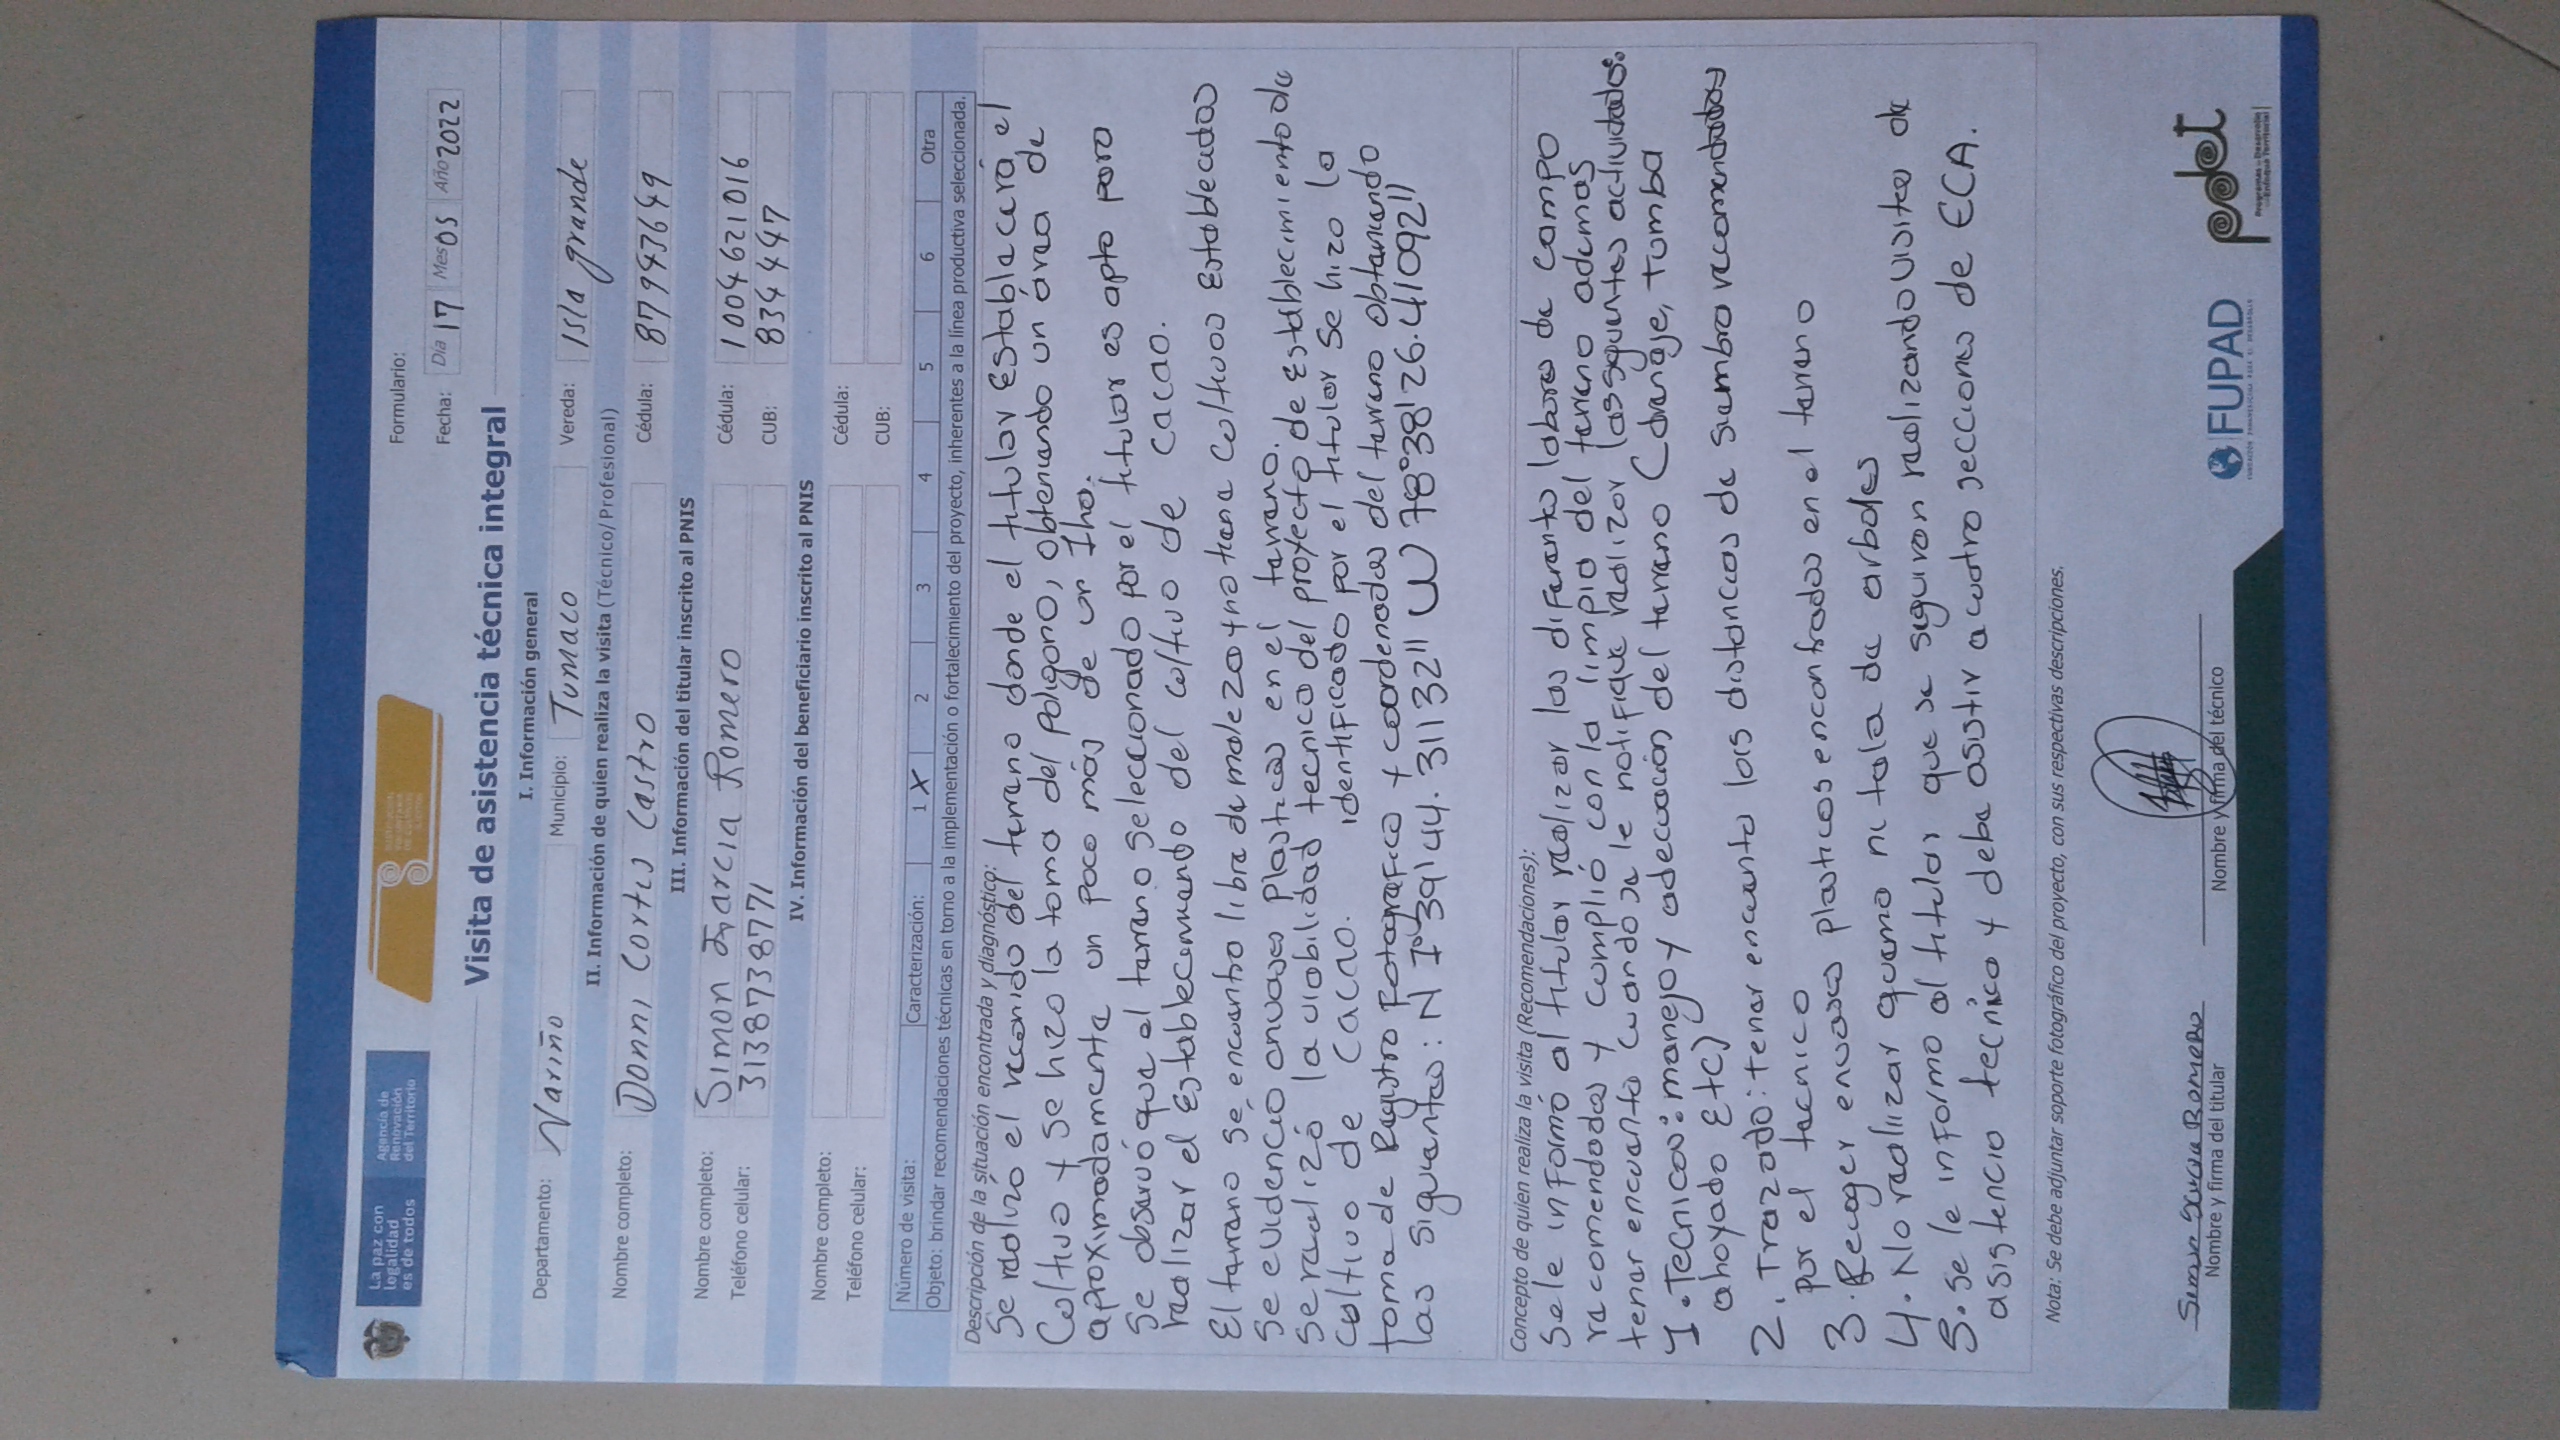 La paz con
legalidad
es de todos
Agencia de
Renovación
del Territorio
Formulario:
Fecha: Día 17 Mes 05 Año 2022
Visita de asistencia técnica integral
I. Información general
Departamento: Nariño Municipio: Tumaco Vereda: Isla grande
II. Información de quien realiza la visita (Técnico/Profesional)
Nombre completo: Donni Cortes Castro Cédula: 87943649
III. Información del titular inscrito al PNIS
Nombre completo: Simon Garcia Romero Cédula: 1004621016
Teléfono celular: 3138738771 CUB: 834447
IV. Información del beneficiario inscrito al PNIS
Nombre completo: Cédula:
Teléfono celular: CUB:
Número de visita: Caracterización: 1 X 2 3 4 5 6 Otra
Objeto: brindar recomendaciones técnicas en torno a la implementación o fortalecimiento del proyecto, inherentes a la línea productiva seleccionada.
Descripción de la situación encontrada y diagnóstico:
Se realizó el recorrido del terreno donde el titular establecerá el
Cultivo y se hizo la toma del polígono, obteniendo un área de
aproximadamente un poco más de un 1ha.
Se observó que el terreno seleccionado por el titular es apto para
realizar el establecimiento del cultivo de cacao.
El terreno se encuentra libre de maleza y no tiene cultivos establecidos
Se evidencio envases plasticos en el terreno.
Se realizó la viabilidad tecnico del proyecto de establecimiento de
cultivo de cacao. identificado por el titular se hizo la
toma de Registro fotografico y coordenadas del terreno obteniendo
las siguientes: N 1°39'44.31132" W 78°38'26.41092"
Concepto de quien realiza la visita (Recomendaciones):
Se le informó al titular realizar las diferentes labores de campo
recomendadas y cumplió con la limpia del terreno ademas
tener encuenta cuando se le notifique realizar las siguientes actividades:
1. Tecnicas: manejo y adecuación del terreno (drenaje, tumba
ahoyado Etc)
2. Trazado: tener encuenta las distancias de siembra recomendadas
por el tecnico
3. Recoger envases plasticos encontrados en el terreno
4. No realizar quema ni tala de arboles
5. se le informo al titular que se seguiran realizando visitas de
asistencia tecnica y debe asistir a cuatro secciones de ECA.
Nota: Se debe adjuntar soporte fotográfico del proyecto, con sus respectivas descripciones.
Simon Garcia Romero
Nombre y firma del titular
Nombre y firma del técnico
FUPAD
pdet